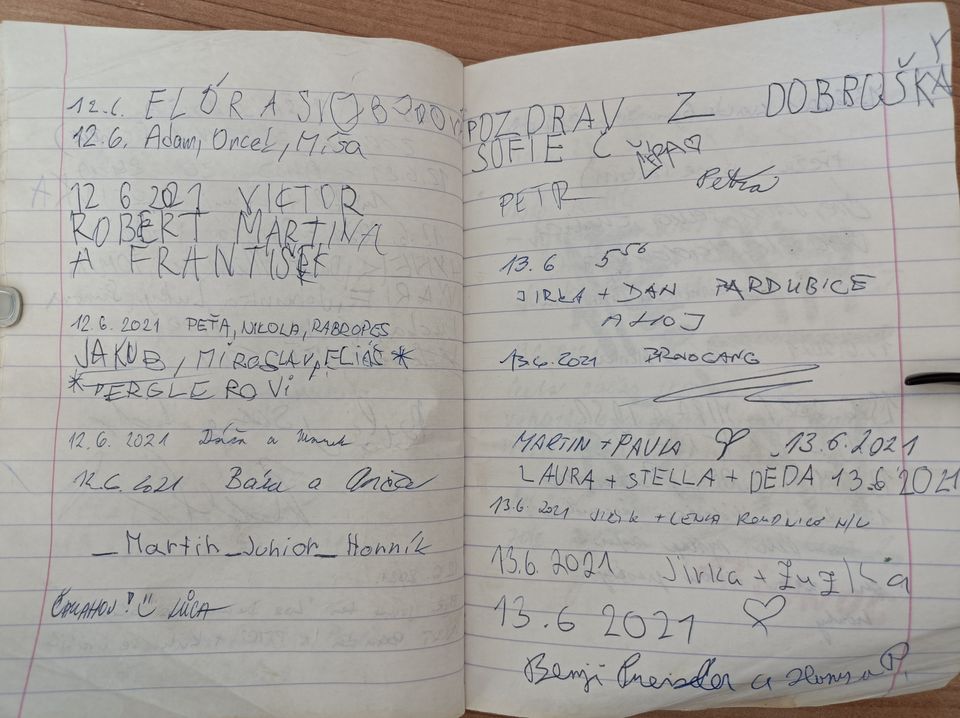 12.6. ELÓRA SVOBODOVÁ
12.6. Adam, Oncel, Míša
12 6 2021 VICTOR
ROBERT MARTINA
A FRANTIŠEK
12.6.2021 PEŤA, NIKOLA, RABROPES
JAKUB, MIROSLAV, ELIÁŠ *
* PERGLEROVI
12.6.2021 Dáša a
12.6.2021 Bára a
_Martin_Junior_Horník
! LUCA
POZDRAV Z DOBROŠKY
SOFIE
PETR Petra
13.6 5⁵⁶
JIRKA + DAN PARDUBICE
AHOJ
13.6.2021 BRNOGANG
MARTIN + PAVLA ♡ 13.6.2021
LAURA + STELLA + DĚDA 13.6 2021
13.6.2021 + LENKA ROUDNICE N/L
13.6.2021 Jirka + Zuzka
13.6 2021 ♡
Benji Preisler a Honza P.